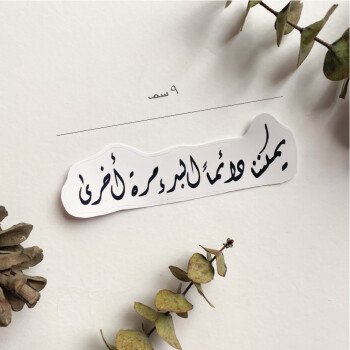 ٩ سم
يمكننا دائماً البدء مرة أخرى